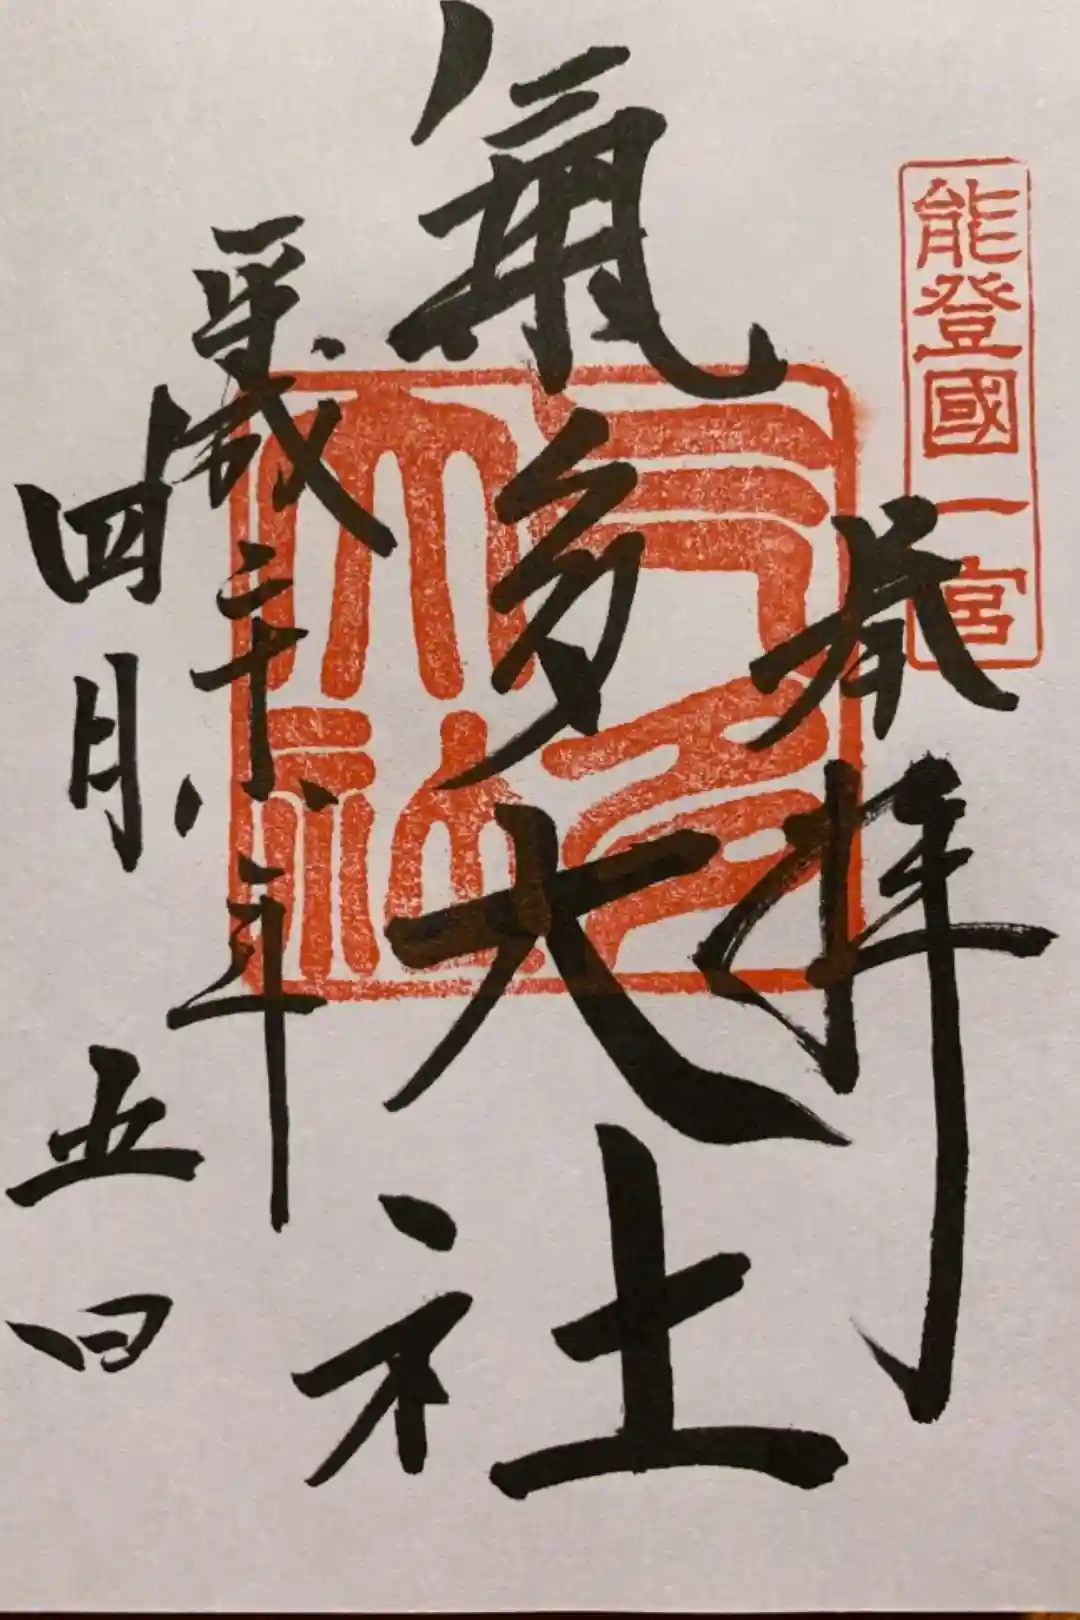 能登國一宮
奉拝
氣多大社
气多
大社
平成二十八年
四月五日